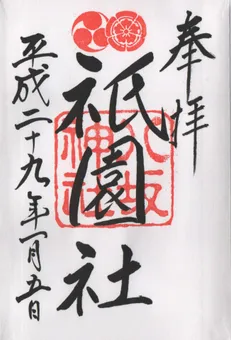 奉拝
八坂神社
祇園社
平成二十九年一月五日